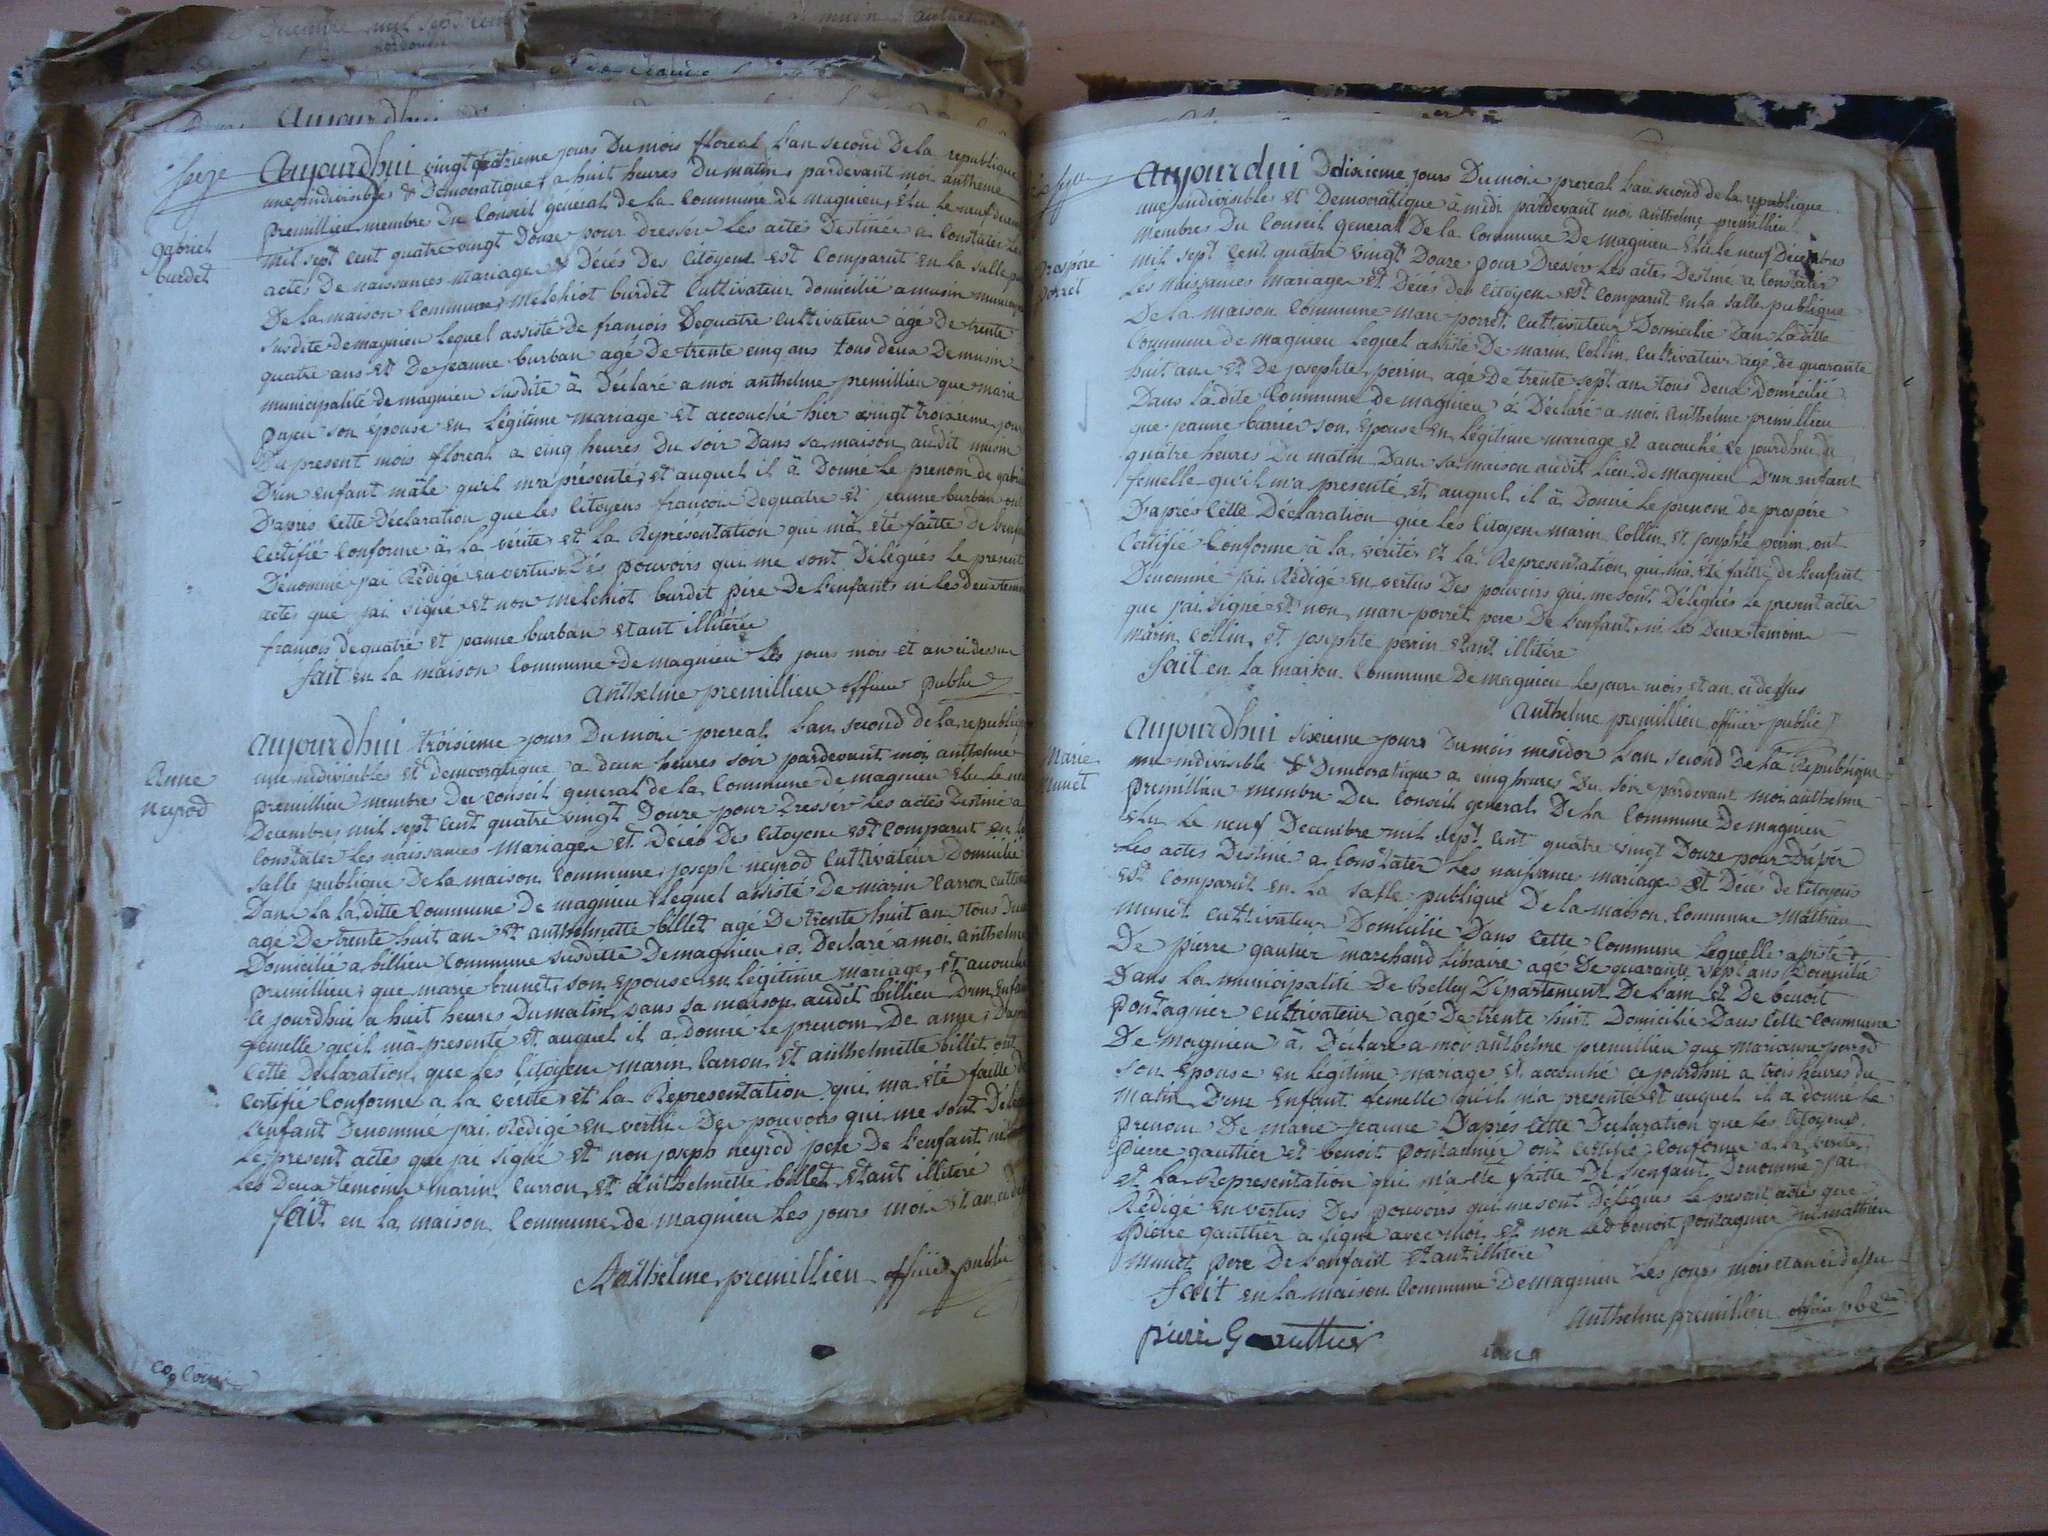 Aujourdhui vingt quatrieme jours Du mois floreal l'an second De la republique
une indivisibles & Democratique, a huit heures Du matin, pardevant moi anthelme
premillieu membre Du Conseil general de la Commune de magnieu, Elu le neuf decem
mil sept cent quatre vingt Douze pour dressér Les actes Destinés a Constater Les
actes De naissances mariages & Décés Des Citoyens est Comparut en la salle pu
De la maison Commune, melchiot burdet Cultivateur domicilié a musin municipa
susdite de magnieu lequel assisté de francois Dequatre cultivateur agé de trente
quatre ans et De jeanne burban agé De trente cinq ans tous deux De musin
municipalité de magnieu susdite ä Déclaré a moi anthelme premillieu que marie
pajeu son epouse en Légitime mariage et accouché hier vingt troisieme jour
Du present mois floreal a cinq heures Du soir Dans sa maison audit musin
D'un enfant mâle qu'il m'a présenté, et auquel il ä Donné Le prenom de gabriel
D'après Cette Déclaration que les Citoyens francois Dequatre et jeanne burban ont
Certifié Conforme ä la vérité et la Représentation qui m'a été faitte de l'enfant
Dénommé jai Rédigé en vertus Dés pouvoirs qui me sont Délégués le present
actes que jai signé et non melchiot burdet père De L'enfant ni Les deux temoins
françois dequatre et jeanne burban etant illitéré
fait en la maison Commune de magnieu les jours mois et an ci dessus
Anthelme premillieu officier public
gabriel
burdet
Aujourdhui troisieme jours Du mois prereal L'an second de la republique
une indivisibles et democratique a deux heures soir pardevant moi anthelme
premillieu membres Du conseil general de la Commune de magnieu elu le neuf
Decembres mil sept cent quatre vingt Douze pour Dressér Les actes Destiné a
Constater Les naissances Mariages et Décés Des Citoyens est Comparut en la
salle publique De la maison Commune, joseph neyrod Cultivateur Domicilié
Dans La la ditte Commune De magnieu Lequel assisté De marin Carron cultiva
agé De trente huit an et anthelmette billet agé De trente huit an tous Deux
Domicilié a billieu Commune susditte De magnieu, a Declaré a moi anthelme
premillieu que marie brunet, son epouse en légitime mariage, et accouché
Ce jourdhui a huit heures Du matin Dans sa maison audit billieu D'un enfant
femelle qu'il m'a presenté et auquel il a donné le prenom De anne, D'après
Cette Declaration que les Citoyens marin Carron et anthelmette billet ont
Certifié Conforme a la vérité et la Représentation qui ma eté faitte de
L'enfant Dénommé jai Rédigé en vertu Des pouvoirs qui me sont Délégués
Le present actes que jai signé et non joseph neyrod pere De l'enfant ni
Les Deux temoins marin Carron et anthelmette billet etant illitéré
fait en la maison Commune de magnieu Les jours mois et an ci dessus
Anthelme premillieu officier public
Anne
neyrod
Aujourdui Ddixieme jours Du mois prereal L'an second de la republique
une indivisibles et Democratique a midi pardevant moi anthelme premillieu
Membres Du Conseil general De la Commune De magnieu Elu le neuf Décembres
mil sept cent quatre vingt Douze pour Dressér Les actes Destiné a Constatér
Les naissances Mariages et Décés des Citoyens est Comparut en la salle publique
De la maison Commune marc porret Cultivateur Domicilié Dans La ditte
Commune de magnieu Lequel assisté De marin Collin Cultivateur agé de quarante
huit ans et De josephte perrin agé De trente sept ans tous deux Domicilié
Dans la dite Commune de magnieu ä Déclaré a moi anthelme premillieu
que jeanne barrier son épouse en Légitime mariage et accouché ce jourdhui a
quatre heures Du matin Dans sa maison audit Lieu de magnieu D'un enfant
femelle qu'il m'a presenté et auquel il ä Donné le prenom de prospére
D'après Cette Déclaration que les Citoyens marin Collin et josephte perrin ont
Certifié Conforme ä la vérité et la Representation qui m'a eté faitte de l'enfant
Dénommé jai Rédigé en vertus Des pouvoirs qui me sont Délégués le present actes
que jai signé et non marc porret pere De l'enfant ni Les Deux temoins
Marin Collin et josephte perrin etant illitéré
fait en la maison Commune De magnieu Les jours mois et an ci dessus
Anthelme premillieu officier public
prospére
porret
Aujourdhui sixieme jours Du mois mesidor L'an second De la République
une indivisible & Democratique a cinq heures Du soir pardevant moi anthelme
premillieu membre Du Conseil general De la Commune De magnieu
Elu Le neuf Decembre mil sept cent quatre vingt Douze pour Dréssér
Les actes Destiné a Constater Les naissances mariages et Décé de Citoyens
est Comparut en La salle publique De la maison Commune Mathieu
munet cultivateur Domicilié Dans Cette Commune Lequelle assisté
De pierre gautier marchand Libraire agé De quarante sept ans Domicilié
Dans La municipalité De belley Departement De L'ain et De benoit
pontagnier cultivateur agé De trente huit Domicilié Dans Cette Commune
De magnieu ä Déclaré a moi anthelme premillieu que Marianne perrod
son epouse en légitime mariage et accouché ce jourdhui a trois heures du
matin D'une enfant femelle qu'il m'a presenté et auquel il a donné le
prenom De marie jeanne D'après Cette Declaration que Les Citoyens
pierre gauthier et benoit pontagnier ont certifié Conforme a la vérité
et la Representation qui m'a eté faitte De l'enfant Denommé jai
Rédigé en vertus Des pouvoirs qui me sont Délégués Le present actes que
pierre gauthier a signé avec moi et non led benoit pontagnier ni mathieu
munet pere De l'enfant etant illitéré
fait en la maison Commune De magnieu Les jours mois et an ci dessu
Anthelme premillieu officier
pierre Gauthier
Marie
Munet